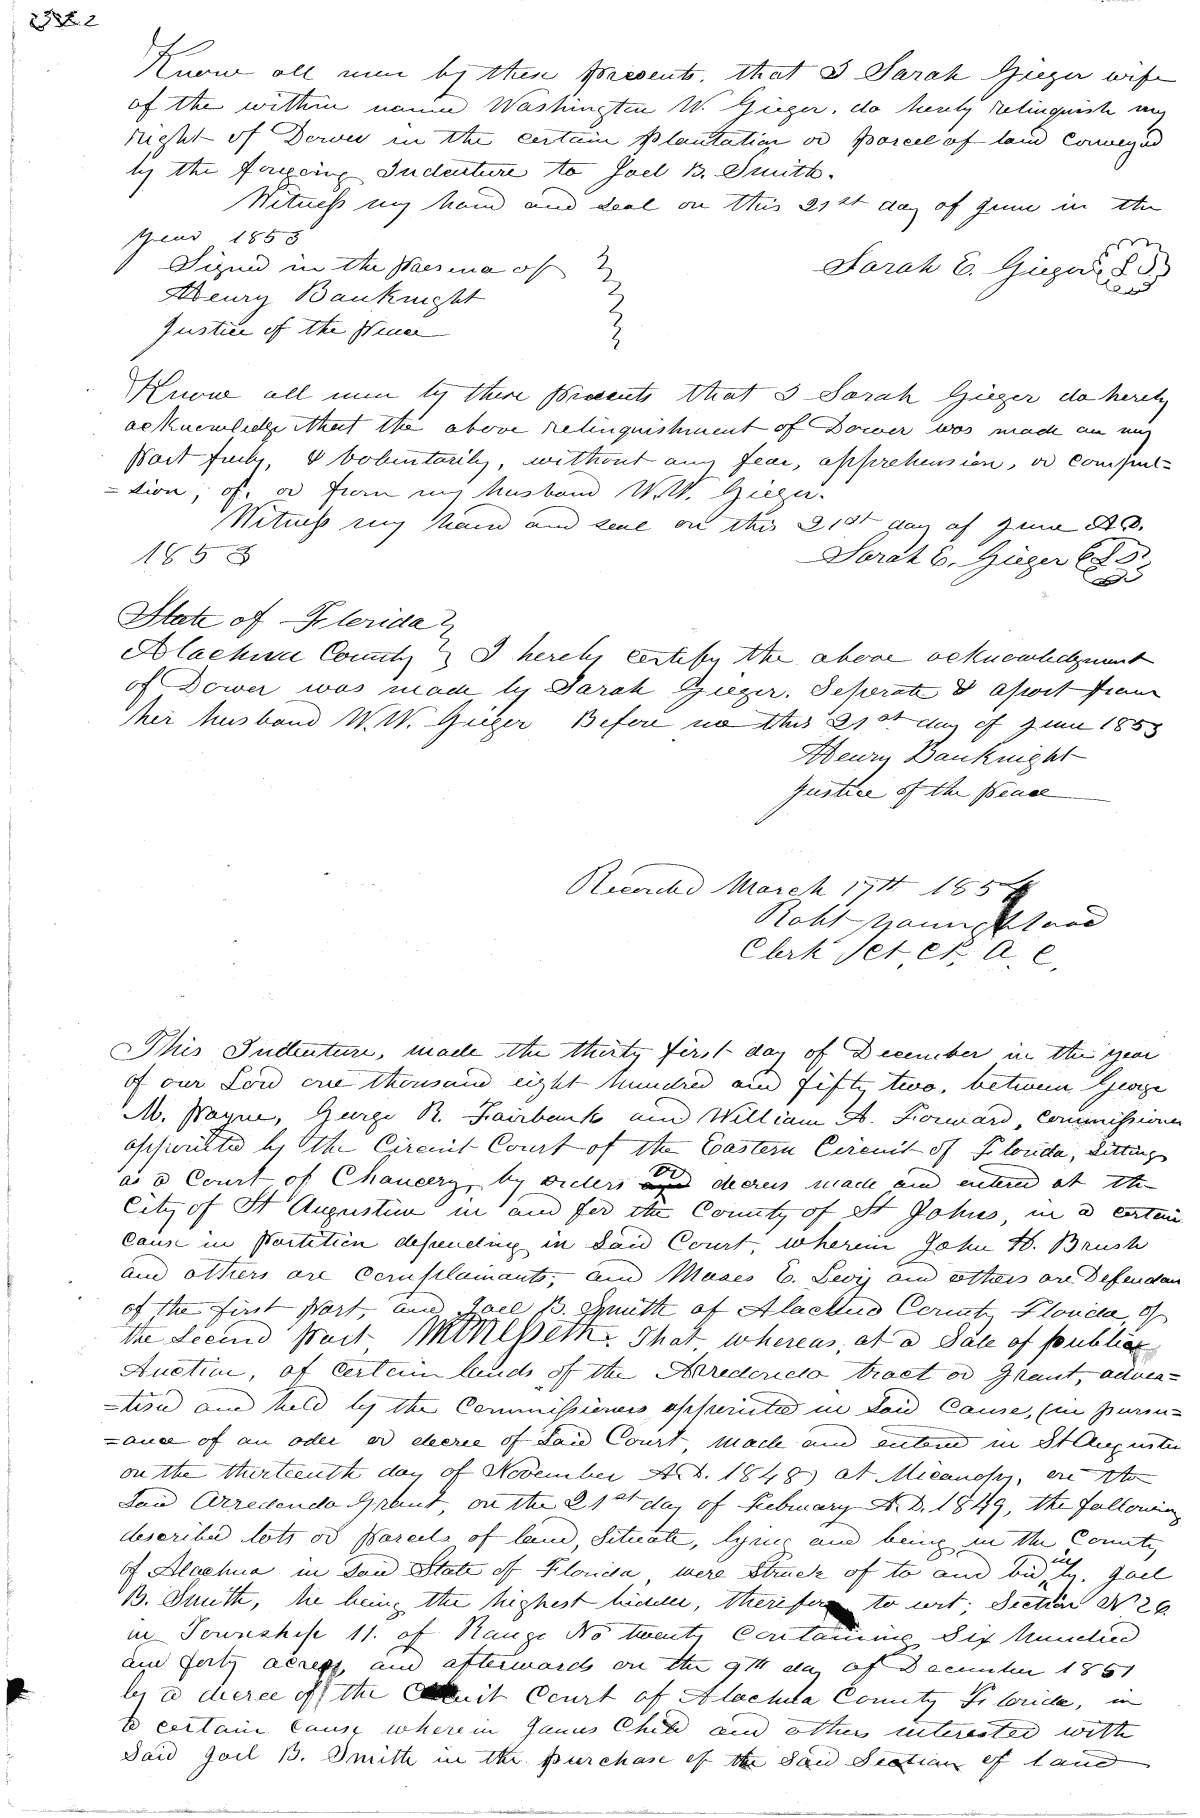 Know all men by these presents. that I Sarah Gieger wife
of the within name Washington W. Gieger. do hereby relinquish my
right of Dower in the certain plantation or parcel of land conveyed
by the forgoing Indenture to Joel B. Smith.
Witness my hand and seal on this 21st day of June in the
year 1853
Signed in the presence of
Sarah E. Gieger L S
Henry Bauknight
Justice of the Peace
Know all men by these presents that I Sarah Gieger do hereby
acknowledge that the above relinquishment of Dower was made on my
part freely, & voluntarily, without any fear, apprehension, or compul=
=sion, of, or from my husband W.W. Gieger.
Witness my hand and seal on this 21st day of June A.D.
1853
Sarah E. Gieger L S
State of Florida
Alachua County I hereby certify the above acknowledgment
of Dower was made by Sarah Gieger. Seperate & apart from
her husband W.W. Gieger Before me this 21st day of June 1853
Henry Bauknight
Justice of the Peace
Recorded March 17th 1854
Robt Youngblood
Clerk Ct. A. C.
This Indenture, made the thirty first day of December in the year
of our Lord one thousand eight hundred and fifty two, between George
M. Payne, George R. Fairbanks and William A. Forward, commissioners
appointed by the Circuit Court of the Eastern Circuit of Florida, sitting
as a Court of Chancery, by orders or decrees made and entered at the
City of St Augustine in and for the County of St Johns, in a certain
cause in partition depending in said Court, wherein John H. Brush
and others are complainants, and Moses E. Levy and others are Defendan
of the first part, and Joel B. Smith of Alachua County Florida, of
the second part Witnesseth. That, whereas, at a Sale of public
Auction, of certain lands of the Arredondo tract or Grant, adver=
=tised and held by the Commissioners appointed in said Cause, (in pursu=
=ance of an oder or decree of said Court, made and entered in St Augustine
on the thirteenth day of November A.D. 1848) at Micanopy, on the
said Arredondo Grant, on the 21st day of February A.D. 1849, the following
described lots or parcels of land, situate, lying and being in the County
of Alachua in said State of Florida, were struck of to and bid in by Joel
B. Smith, he being the highest bidder, therefor to wit; Section No 26
in Township 11. of Range No twenty containing six hundred
and forty acres, and afterwards on the 9th day of December 1851
by a decree of the Circuit Court of Alachua County Florida, in
a certain cause wherein James Child and others interested with
said Joel B. Smith in the purchase of the said Section of land